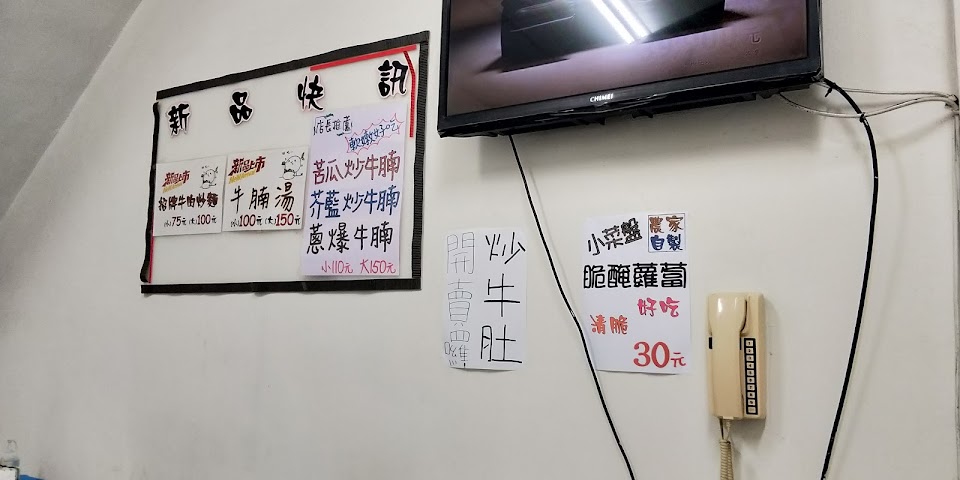 新品快訊
新品上市
招牌牛肉炒麵
小75元 大100元
新品上市
牛腩湯
小100元 大150元
店長推薦
軟嫩好吃
苦瓜炒牛腩
芥藍炒牛腩
蔥爆牛腩
小110元 大150元
炒牛肚
開賣囉
小菜盤
農家自製
脆醃蘿蔔
好吃
清脆
30元
CHIMEI